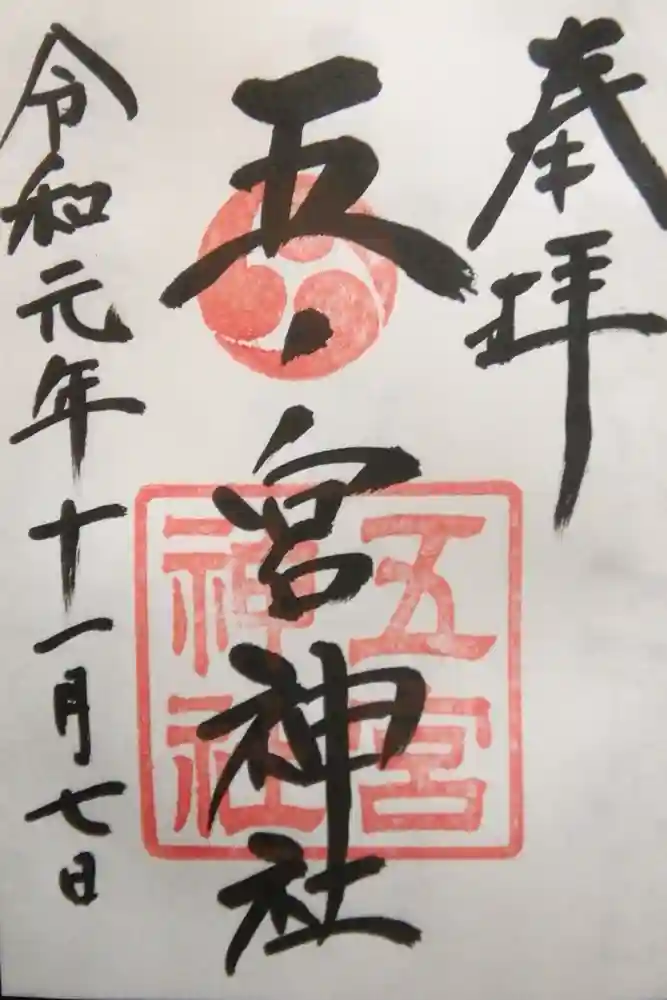 奉拝
五・宮神社
五宮
神社
令和元年十一月七日